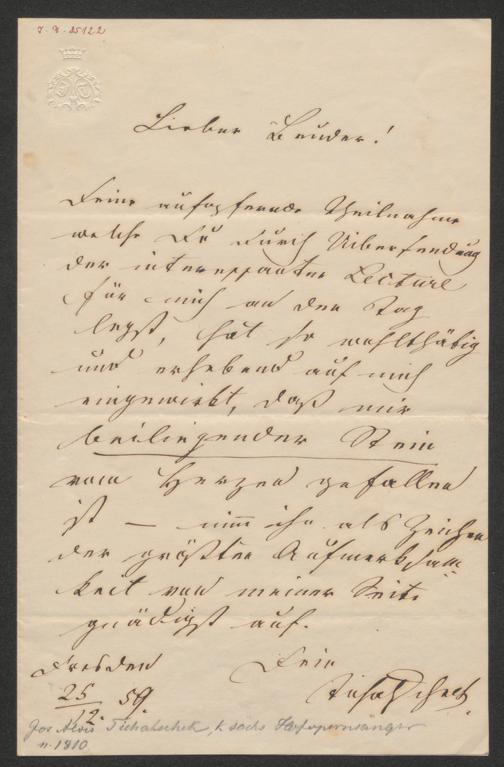 I. N. 25122
Lieber Bruder!
Deine aufopfernde Theilnahme
welche Du durch Uibersendung
der interessanten Lecture
für mich an den Tag
legst, hat so wohlthätig
und erhebend auf mich
eingewirkt, daß mir
beiliegender Stein
vom Herzen gefallen
ist — nimm ihn als Zeichen
der größten Aufmerksam-
keit von meiner Seite
gnädigst auf.
Dresden
25/12. 59.
Dein
Tichatscheck.
Jos Alois Tichatschek, k. sächs Hofopernsänger
n. 1810